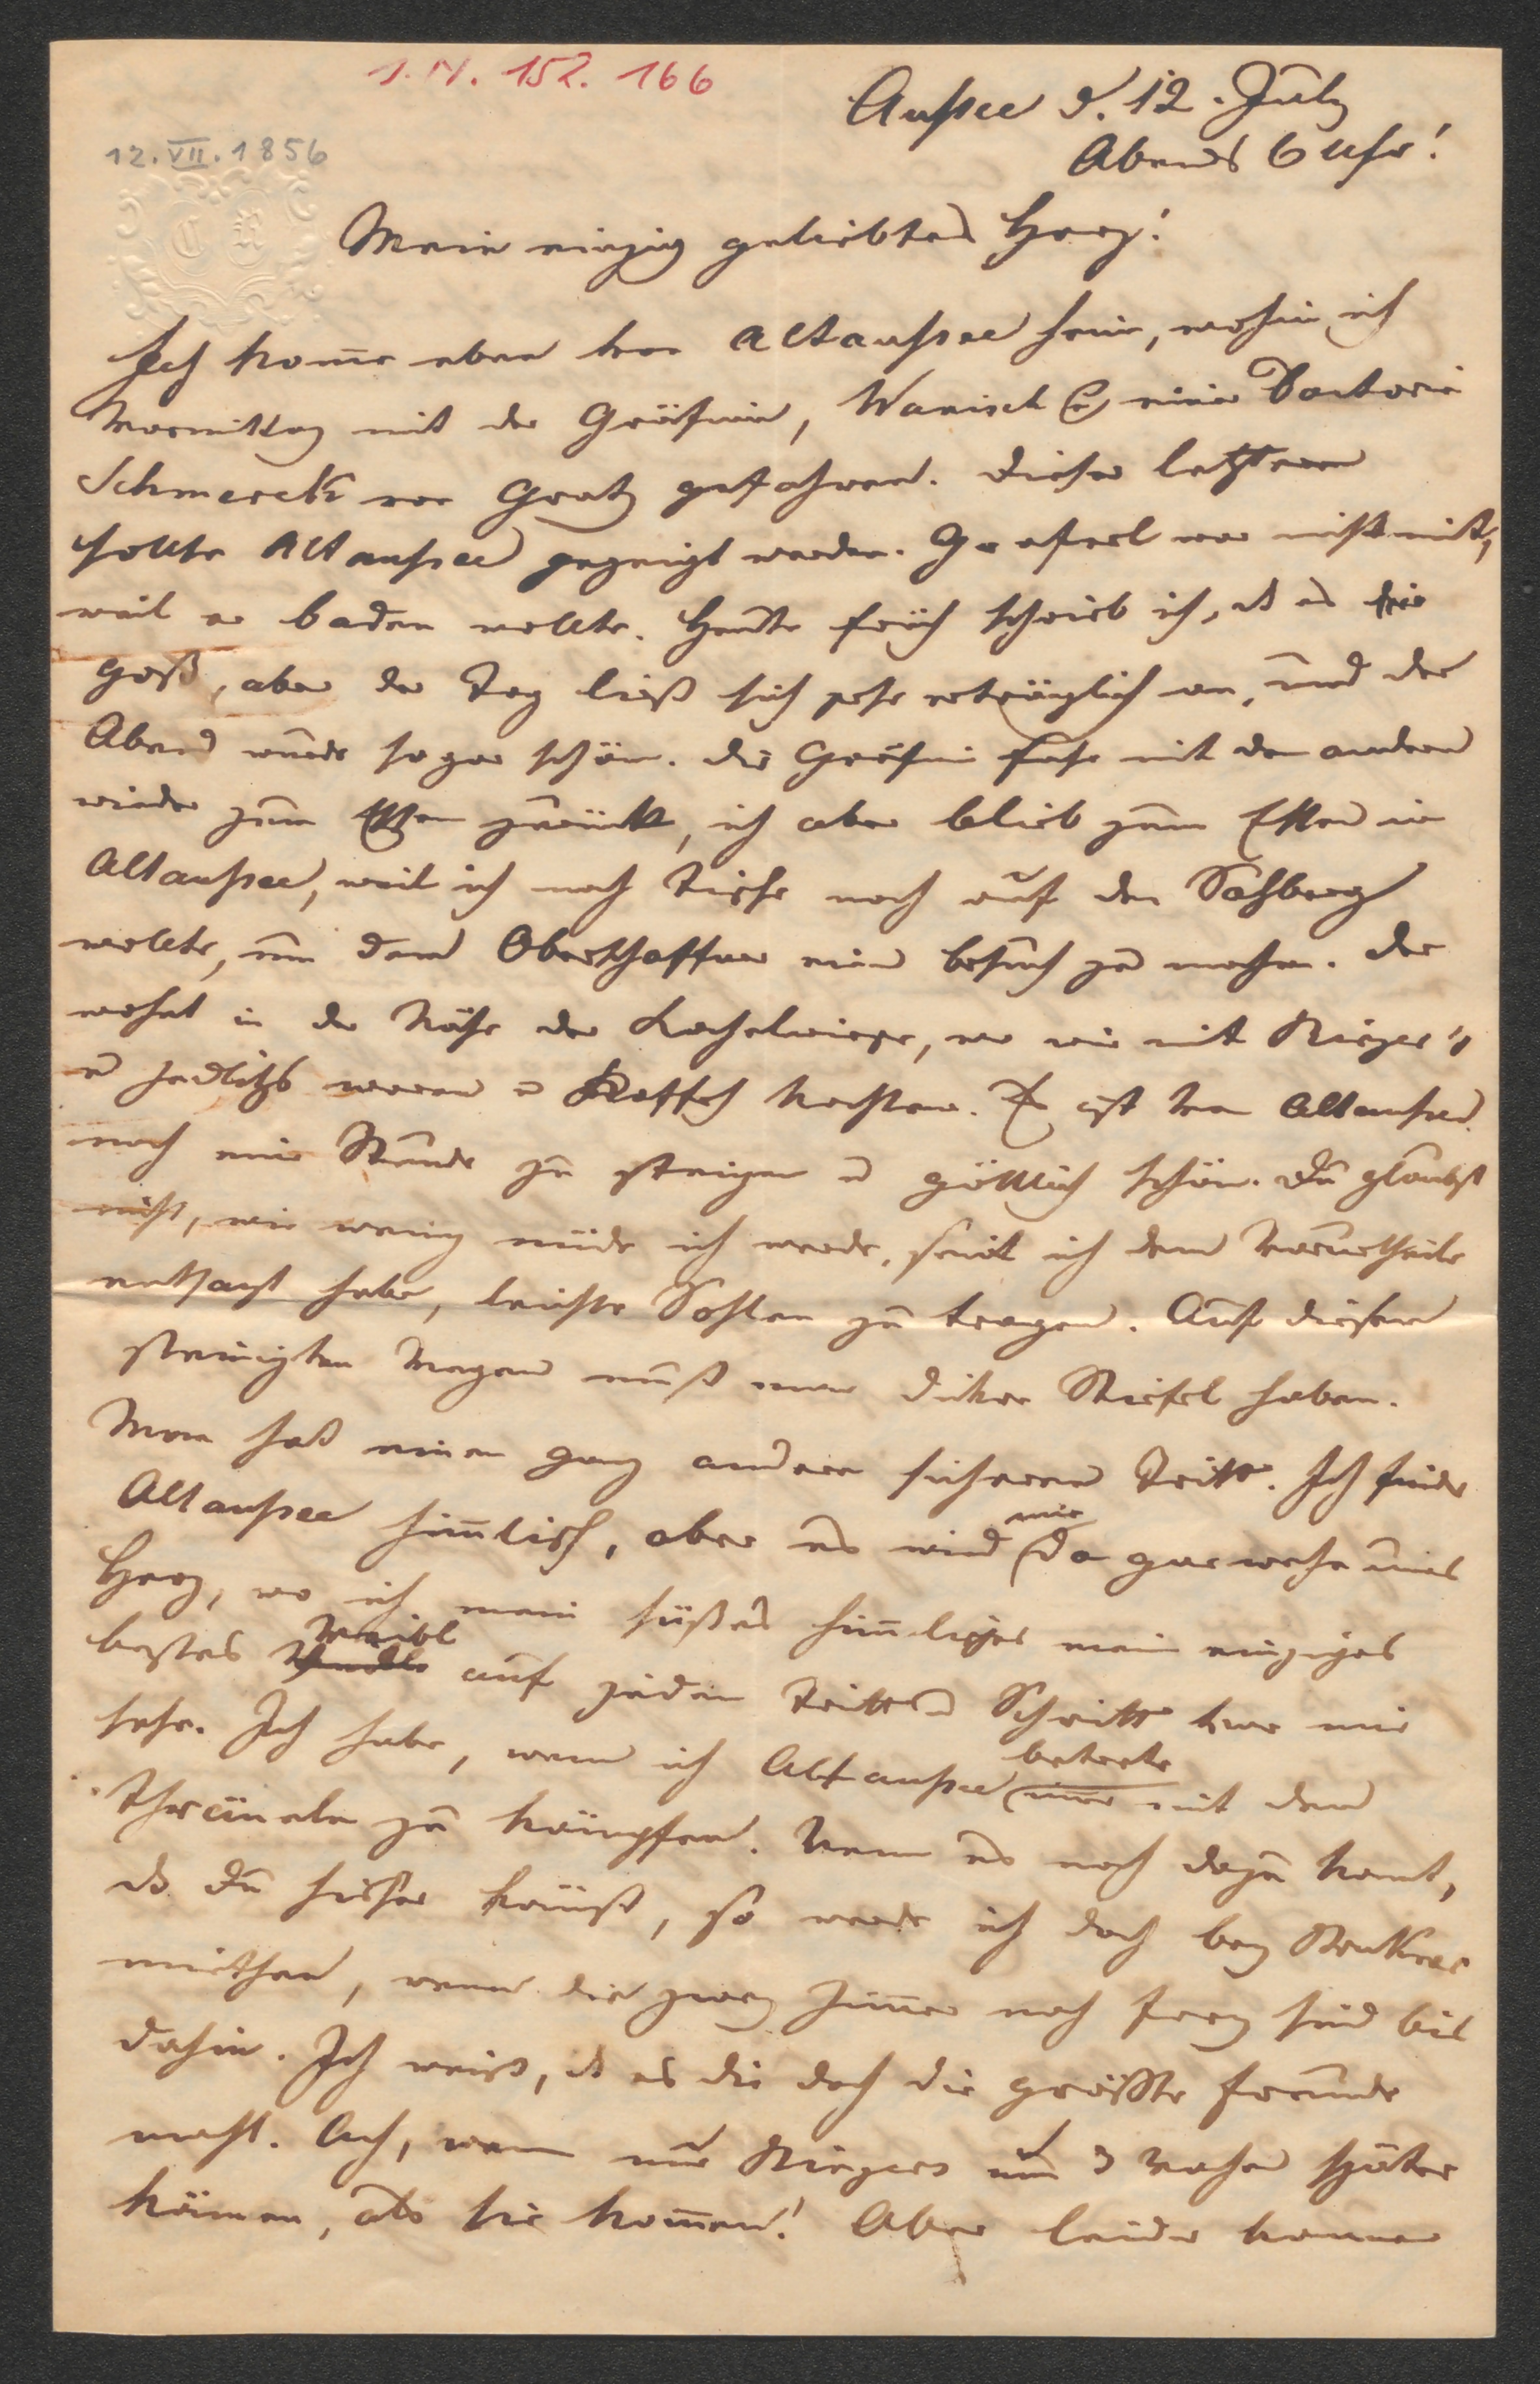 I. N. 152. 166
Aussee d. 12. July
Abends 6 Uhr!
12. VII. 1856
C R
Mein einzig geliebtes Herz!
Ich kome eben von Altaussee heim, wohin ich
Vormittag mit der Gräfinn, Wanisch & einer Doctorin
Schmerek von Gratz gefahren. Dieser letzteren
sollte Altaussee gezeigt werden. Graferl war nicht mit,
weil er baden wollte. Heute früh schrieb ich, ds es
goß, aber der Tag ließ sich sehr erträglich an, und der
Abend wurde sogar schön. Die Gräfin fuhr mit den andern
wieder zum Essen zurück, ich aber blieb zum Essen in
Altaussee, weil ich nach Tische noch auf den Salzberg
wollte, um dem Oberschaffer einen Besuch zu machen. Der
wohnt in der Nähe der Kochelwiese, wo wir mit Rieger's
u Zedlitz waren u Kaffeh kochten. Es ist von Altaussee
noch eine Stunde zu steigen u göttlich schön. Du glaubst
nicht, wie wenig müde ich werde, seit ich dem Vorurtheile
entsagt habe, leichte Sohlen zu tragen. Auf diesen
steinigten Wegen muß man dicke Stiefel haben.
Man hat einen ganz andern sicheren Tritt. Ich finde
Altaussee himlisch, aber es wird mir da gar wehe ums
Herz, wo ich mein süßes himlisches mein einziges
bestes Weibl auf jeden Tritt u Schritt vor mir
sehe. Ich habe, wenn ich Altaussee betrete imer mit den
Thränen zu kämpfen. Wenn es noch dazu komt,
ds Du hieher kömst, so werde ich doch bey
miethen, wenn die zwey Zimer noch frey sind bis
dahin. Ich weiß, ds es dir doch die größte Freude
macht. Ach, wenn nur Riegers um 3 Wochen später
kämen, als sie komen! Aber leider komen